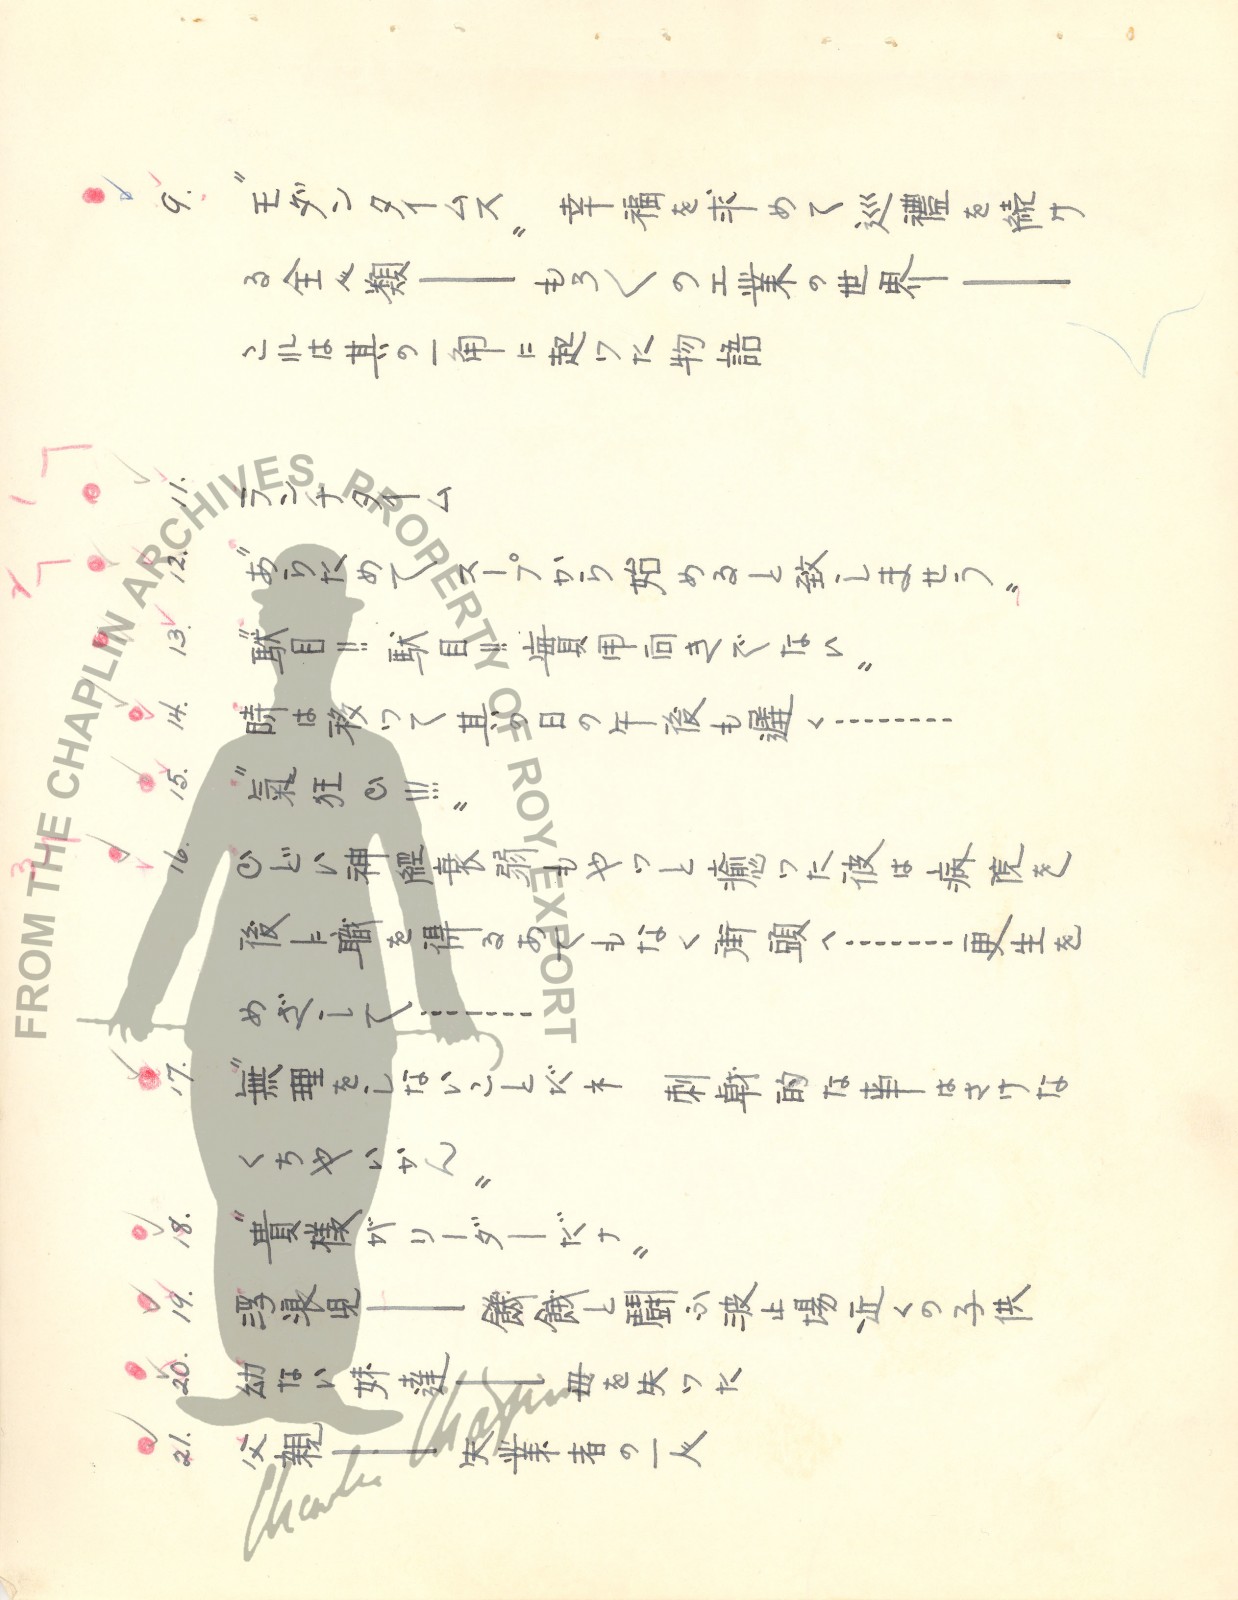 9. "モダンタイムス„ 幸福を求めて巡禮を続け
る全人類——もろ〱の工業の世界——
これは其の一角に起つた物語
11. ランチタイム
12. "あらためてスープから始めると致しませう„
13. "駄目!!! 駄目!!! 實用向きでない„
14. 時は移つて其の日の午後も遅く………
15. "氣狂ひ!!!„
16. ひどい神經衰弱もやつと癒つた彼は病院を
後に職を得るあてもなく街頭へ………更生を
めざして………
17. "無理をしないことだネ 刺戟的な事はさけな
くちやいかん„
18. "貴様がリーダーだナ„
19. 浮浪児——饑餓と鬪ふ波止場近くの子供
20. 幼ない妹達——母を失つた
21. 父親——失業者の一人
FROM THE CHAPLIN ARCHIVES, PROPERTY OF ROY EXPORT
Charlie Chaplin